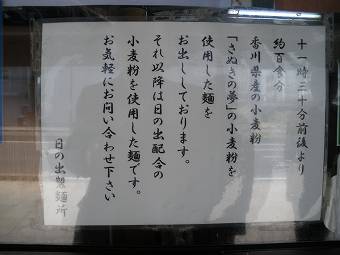 十一時三十分前後より
約百食分
香川県産の小麦粉
「さぬきの夢」の小麦粉を
使用した麺を
お出ししております。
それ以降は日の出配合の
小麦粉を使用した麺です。
お気軽にお問い合わせ下さい
日の出製麺所